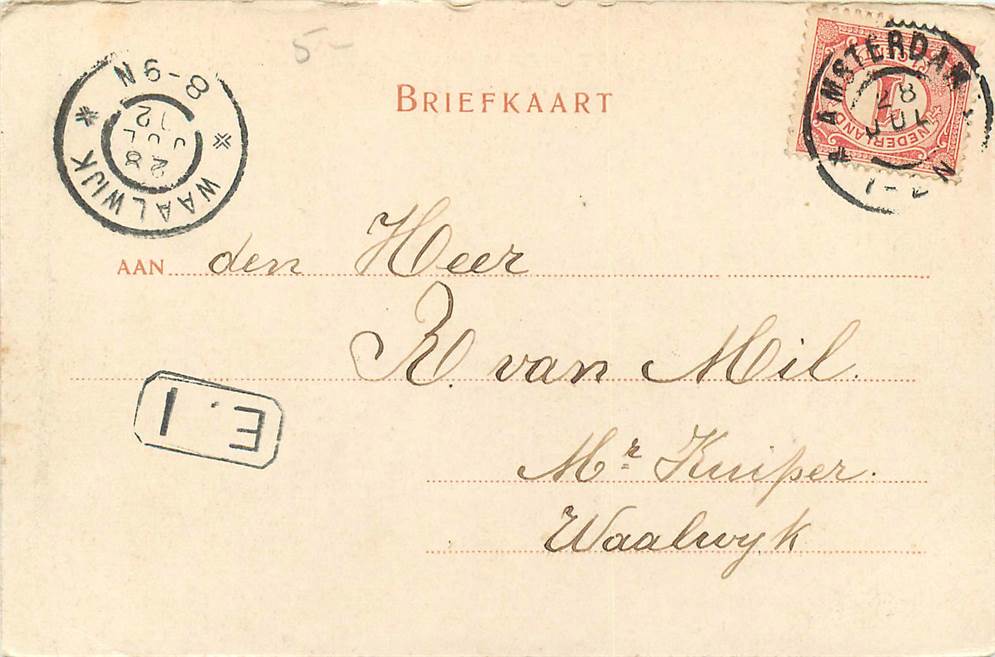 5-
BRIEFKAART
AMSTERDAM
28
JUL
NEDERLAND
1
WAALWIJK
28
JUL
12
8-9N
AAN den Heer
R. van Mil.
Mr Kuiper.
Waalwyk
E.1